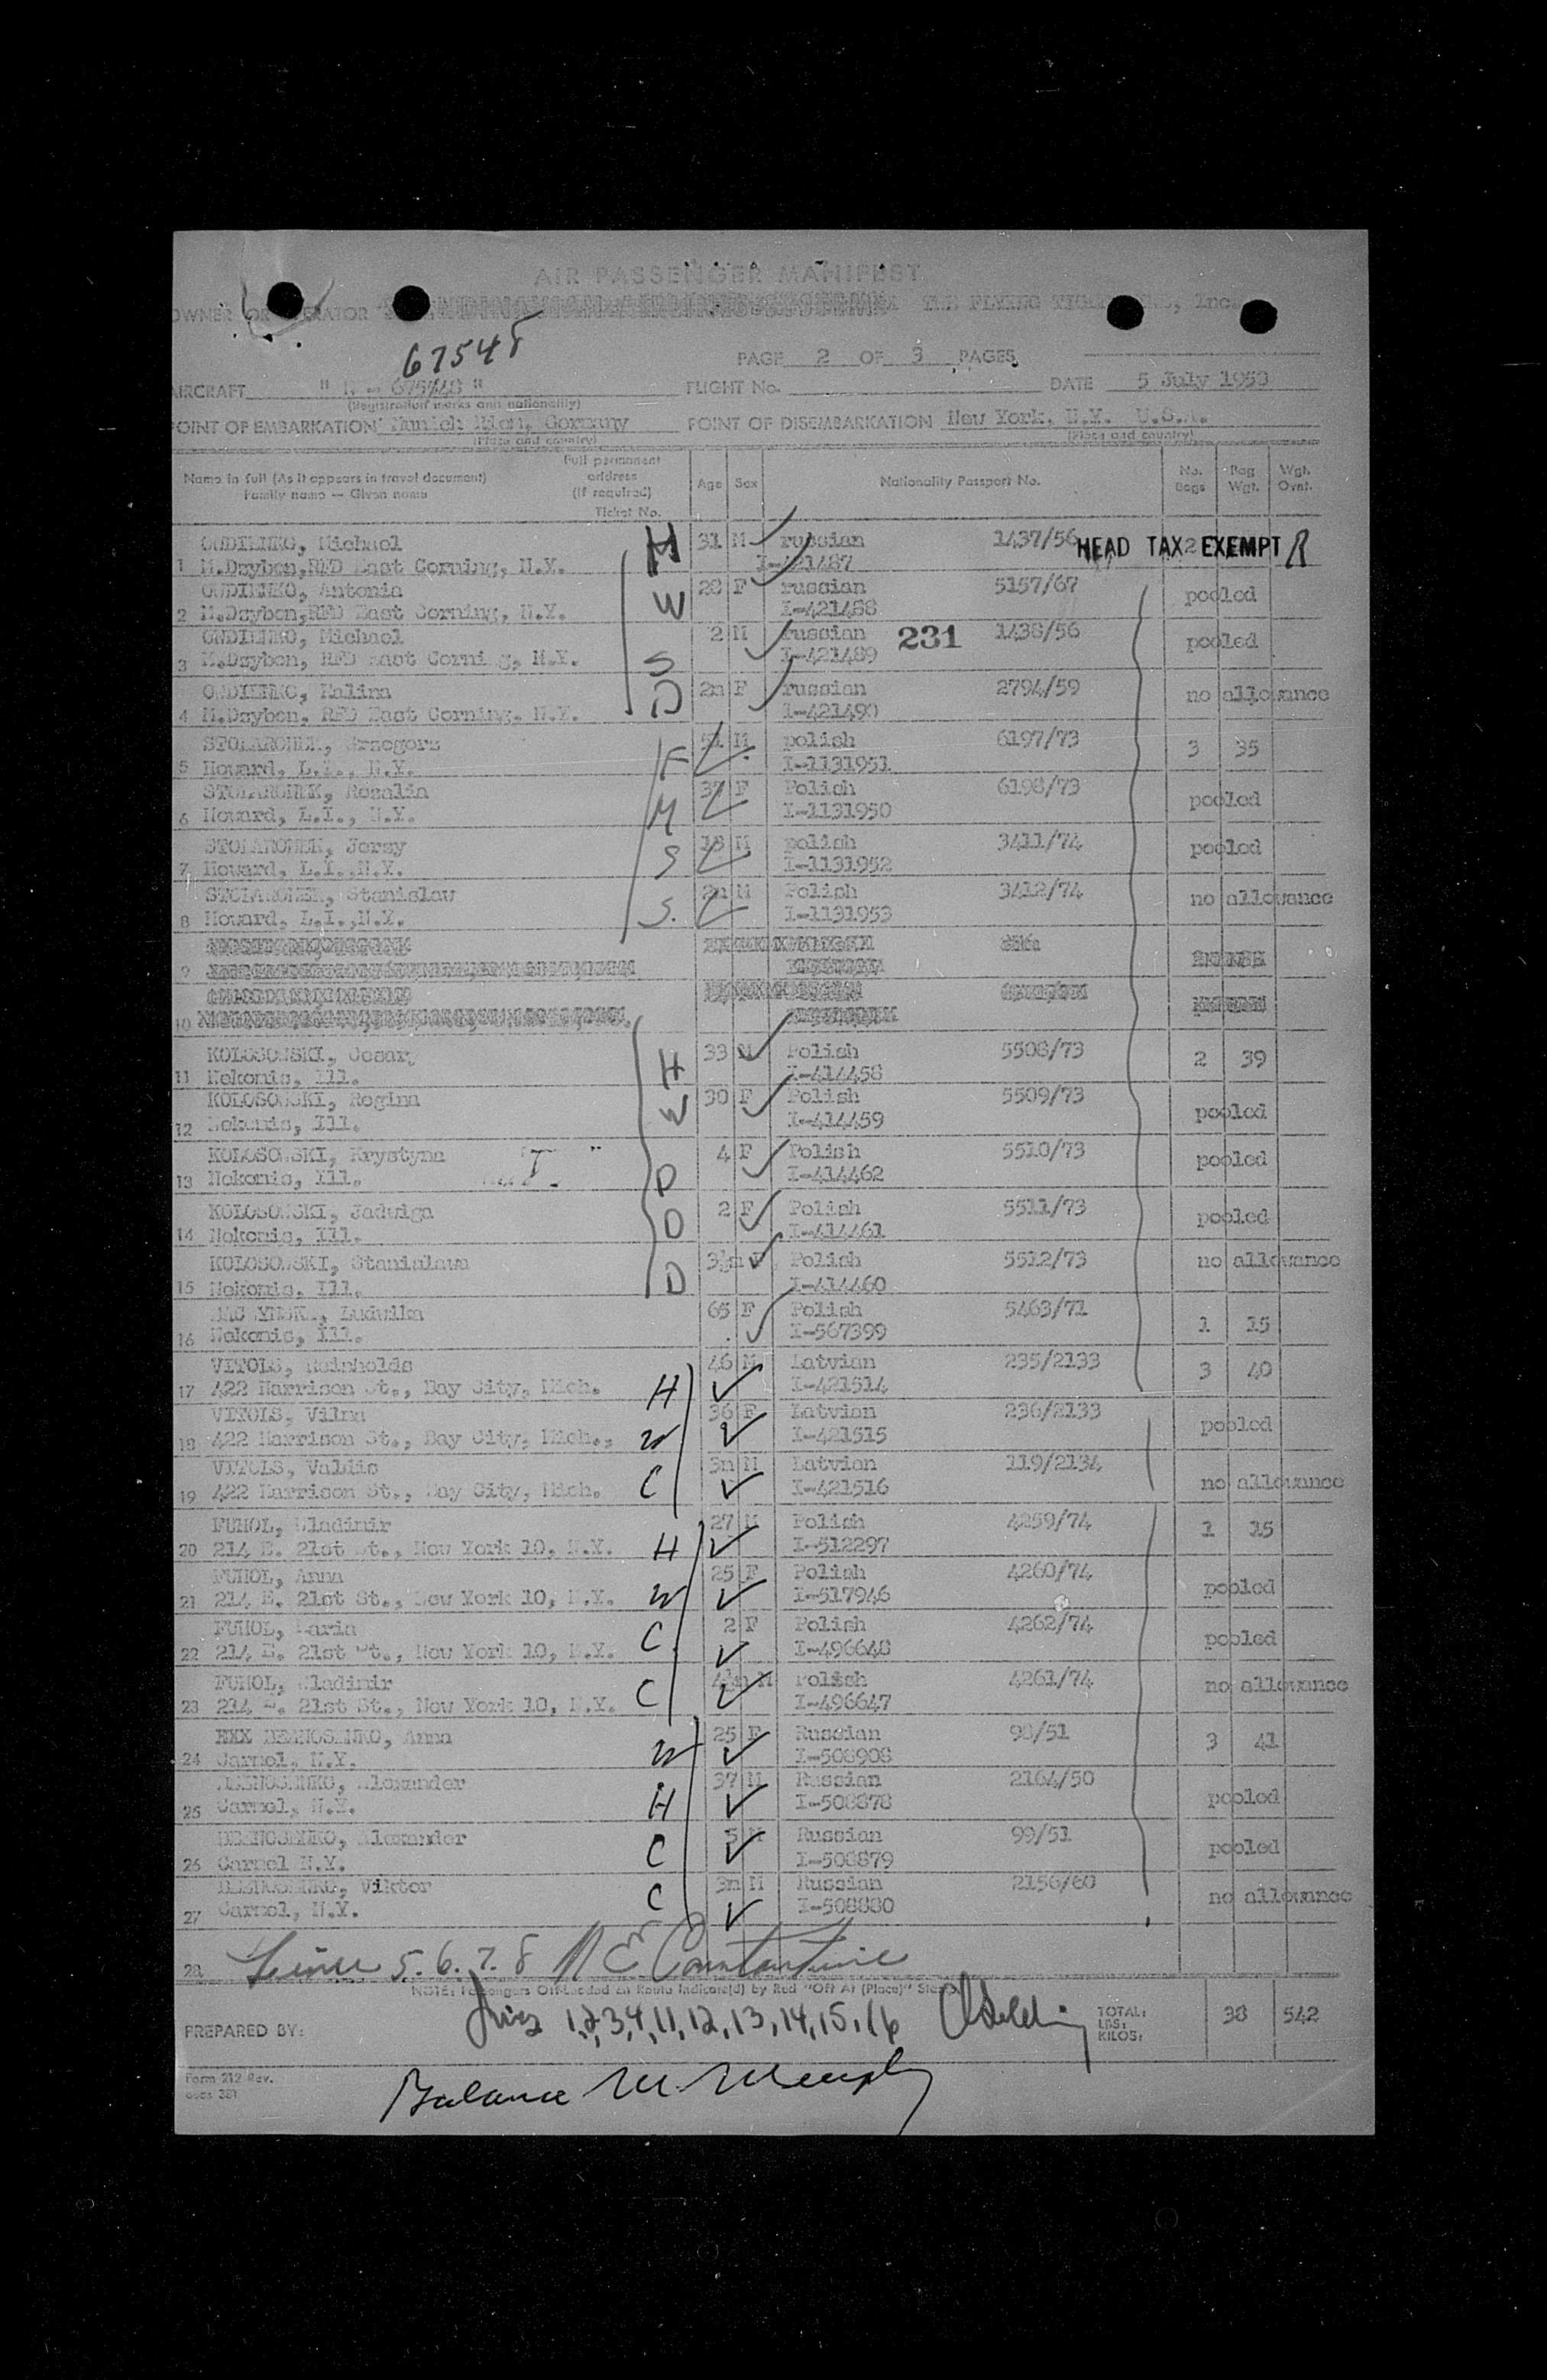 AIR PASSENGER MANIFEST
OWNER OR OPERATOR THE FLYING Inc.
67548
PAGE 2 OF 3 PAGES
AIRCRAFT FLIGHT No. DATE 5 July 1950
(Registration marks and nationality)
POINT OF EMBARKATION Munich Riem, Germany POINT OF DISEMBARKATION New York, N.Y. U.S.A.
(Place and country) (Place and country)
Name in full (As it appears in travel document) Family name — Given name Full permanent address (If required) Ticket No. Age Sex Nationality Passport No. No. Bags Bag Wgt. Wgt. Ovnt.
Michael H 31 M russian 1437/56 HEAD TAX EXEMPT
1 M.Dzyben, RFD East Corning, N.Y. I-421487
Antonia 28 F russian 5157/67 pooled
2 M.Dzyben, RFD East Corning, N.Y. W I-421488
Michael 2 M russian 231 1438/56 pooled
3 M.Dzyben, RFD East Corning, N.Y. S I-421489
Halina D 2m F russian 2794/59 no allowance
4 M.Dzyben, RFD East Corning, N.Y. I-421490
51 M polish 6197/73 3 35
5 Howard, L.I., N.Y. F I-1131951
Rozalia 37 F Polish 6198/73 pooled
6 Howard, L.I., N.Y. M I-1131950
Jerzy M polish 3411/74 pooled
7 Howard, L.I., N.Y. S I-1131952
Stanislaw 2m M Polish 3412/74 no allowance
8 Howard, L.I., N.Y. S. I-1131953
9
10
KOLOSOWSKI, Cesary 33 M Polish 5508/73 2 39
11 Nokomis, Ill. H I-414458
KOLOSOWSKI, Regina 30 F Polish 5509/73 pooled
12 Nokomis, Ill. W I-414459
KOLOSOWSKI, Krystyna "T." 4 F Polish 5510/73 pooled
13 Nokomis, Ill. D I-414462
KOLOSOWSKI, Jadwiga 2 F Polish 5511/73 pooled
14 Nokomis, Ill. D I-414461
KOLOSOWSKI, Stanislawa 3½m F Polish 5512/73 no allowance
15 Nokomis, Ill. D I-414460
Ludwika 65 F Polish 5463/71 1 15
16 Nokomis, Ill. I-567399
VITOLS, Reinholds 46 M Latvian 235/2133 3 40
17 422 Harrison St., Bay City, Mich. H I-421514
VITOLS, Vilma 36 F Latvian 236/2133 pooled
18 422 Harrison St., Bay City, Mich., W I-421515
VITOLS, Valdis 3m M Latvian 119/2134 no allowance
19 422 Harrison St., Bay City, Mich. C I-421516
FUHOL, Wladimir 27 M Polish 4259/74 1 15
20 214 E. 21st St., New York 10, N.Y. H I-512297
FUHOL, Anna 25 F Polish 4260/74 pooled
21 214 E. 21st St., New York 10, N.Y. W I-517946
FUHOL, Maria 2 F Polish 4262/74 pooled
22 214 E. 21st St., New York 10, N.Y. C I-496648
FUHOL, Wladimir 4½m M Polish 4261/74 no allowance
23 214 E. 21st St., New York 10, N.Y. C I-496647
Anna 25 F Russian 98/51 3 41
24 Carmel, N.Y. W I-508908
Alexander 37 M Russian 2164/50 pooled
25 Carmel, N.Y. H I-508878
Alexander 5 M Russian 99/51 pooled
26 Carmel N.Y. C I-508879
Viktor 3m M Russian 2156/60 no allowance
27 Carmel, N.Y. C I-508880
28 Lines 5. 6. 7. 8 Constantine
NOTE: Passengers Off-Loaded en Route Indicate(d) by Red "Off At (Place)" Stamp
PREPARED BY: 1,2,3,4,11,12,13,14,15,16 TOTAL: LBS: KILOS: 38 542
Form 212 Rev.
Balance M. Murphy